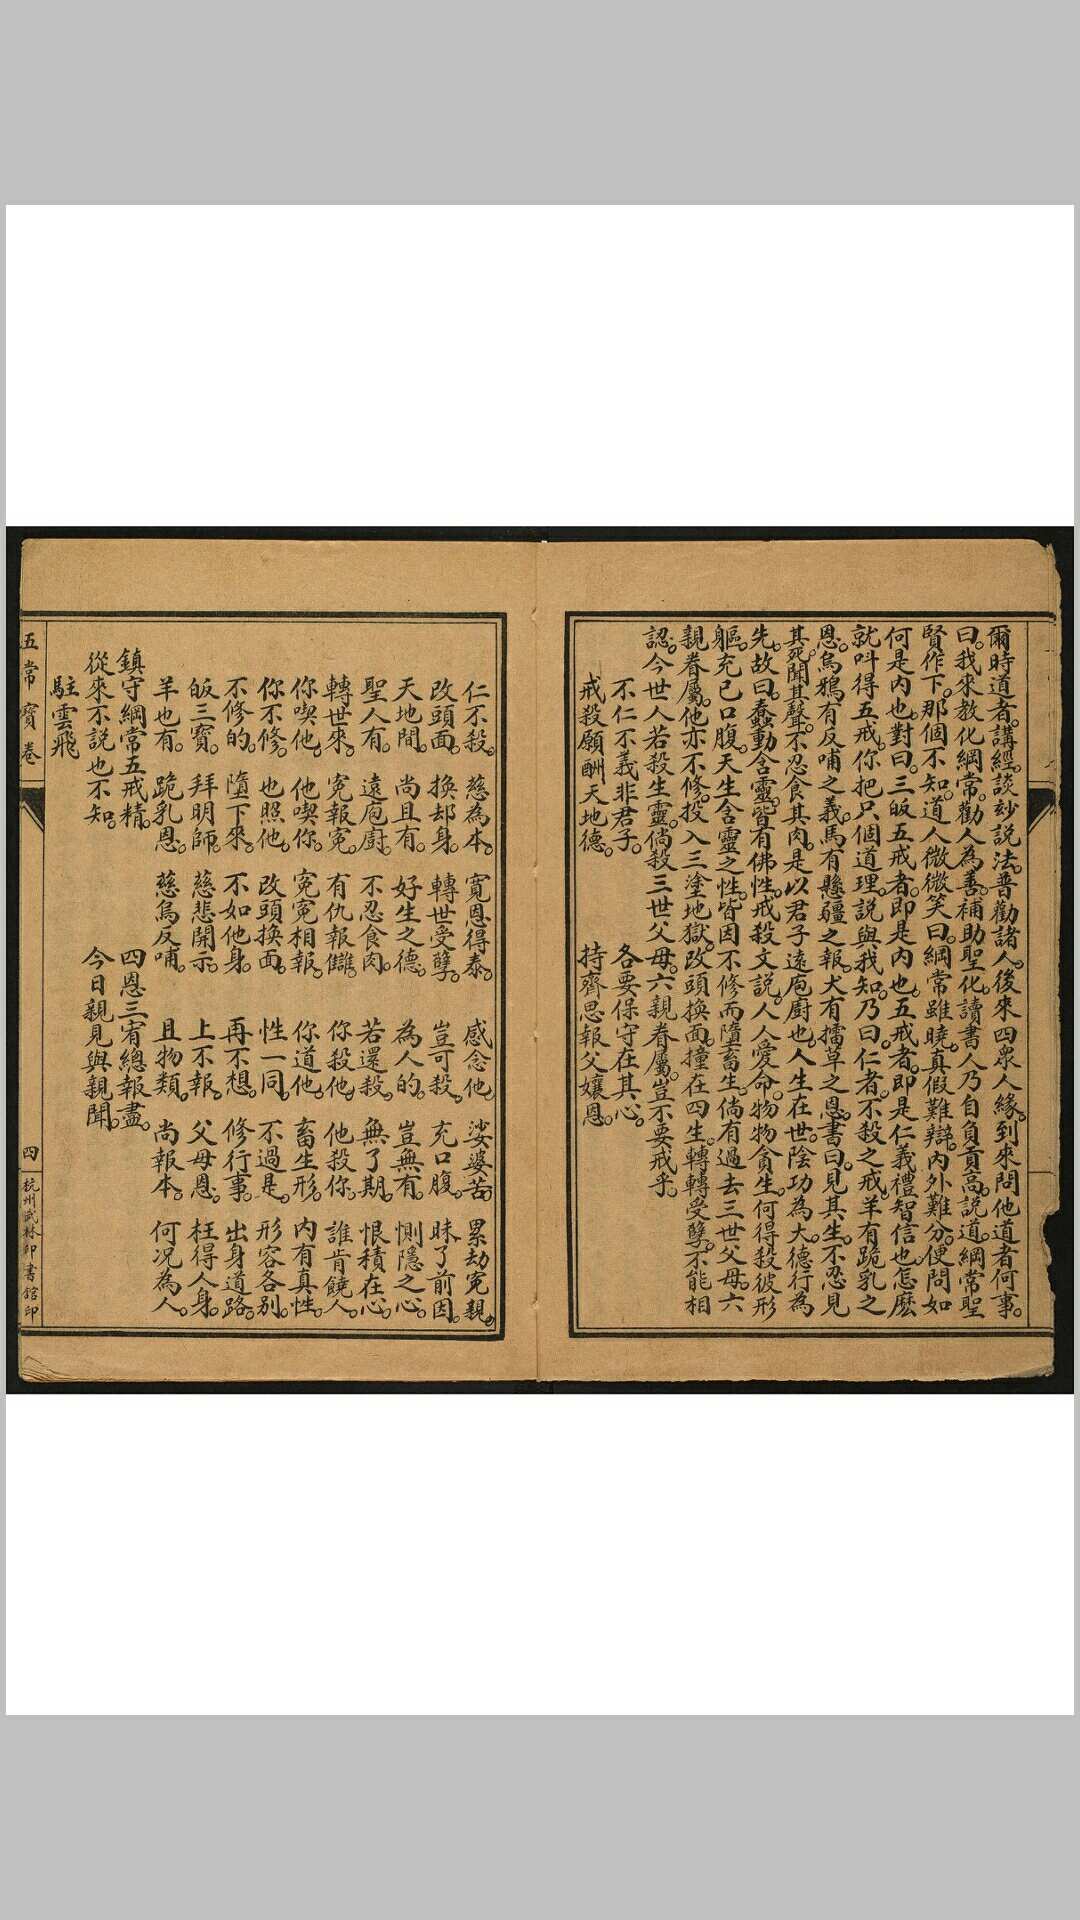 爾時道者。講經談玅說法。普勸諸人。後來四衆人緣。到來問他道者何事。
曰。我來教化綱常。勸人為善。補助聖化。讀書人乃自負貢高。說道。綱常聖
賢作下。那個不知。道人微微笑曰。綱常雖曉。真假難辯。內外難分。便問如
何是內也。對曰。三皈五戒者。即是內也。五戒者。即是仁義禮智信也。怎麽
就呌得五戒。你把只個道理。說與我知。乃曰。仁者。不殺之戒。羊有跪乳之
恩。烏鴉有反哺之義。馬有縣韁之報。犬有擂草之恩。書曰。見其生。不忍見
其死。聞其聲。不忍食其肉。是以君子遠庖廚也。人生在世。陰功為大。德行為
先。故曰。蠢動含靈。皆有佛性。戒殺文說。人人愛命。物物貪生。何得殺彼形
軀。充已口腹。天生含靈之性。皆因不修而墮畜生。倘有過去三世父母。六
親眷屬。他亦不修。投入三塗地獄。改頭換面。撞在四生。轉轉受孽。不能相
認。今世人若殺生靈。倘殺三世父母。六親眷屬。豈不要戒乎。
不仁不義非君子。　各要保守在其心。
戒殺願酬天地德。　持齊思報父孃恩。
仁不殺。慈為本。寬恩得泰。感念他。娑婆苦。累劫寃親。
改頭面。換却身。轉世受孽。豈可殺。充口腹。昧了前因。
天地間。尚且有。好生之德。為人的。豈無有。惻隱之心。
聖人有。遠庖廚。不忍食肉。若還殺。無了期。恨積在心。
轉世來。寃報寃。有仇報讎。你殺他。他殺你。誰肯饒人。
你喫他。他喫你。寃寃相報。你道他。畜生形。內有真性。
你不修。也照他。改頭換面。性一同。不過是。形容各別。
不修的。墮下來。不如他身。再不想。修行事。出身道路。
皈三寶。拜明師。慈悲開示。上不報。父母恩。枉得人身。
羊也有。跪乳恩。慈烏反哺。且物類。尚報本。何况為人。
鎮守綱常五戒精。　四恩三宥總報盡。
從來不說也不知。　今日親見與親聞。
駐雲飛
五常寶卷　四　杭州武林印書館印